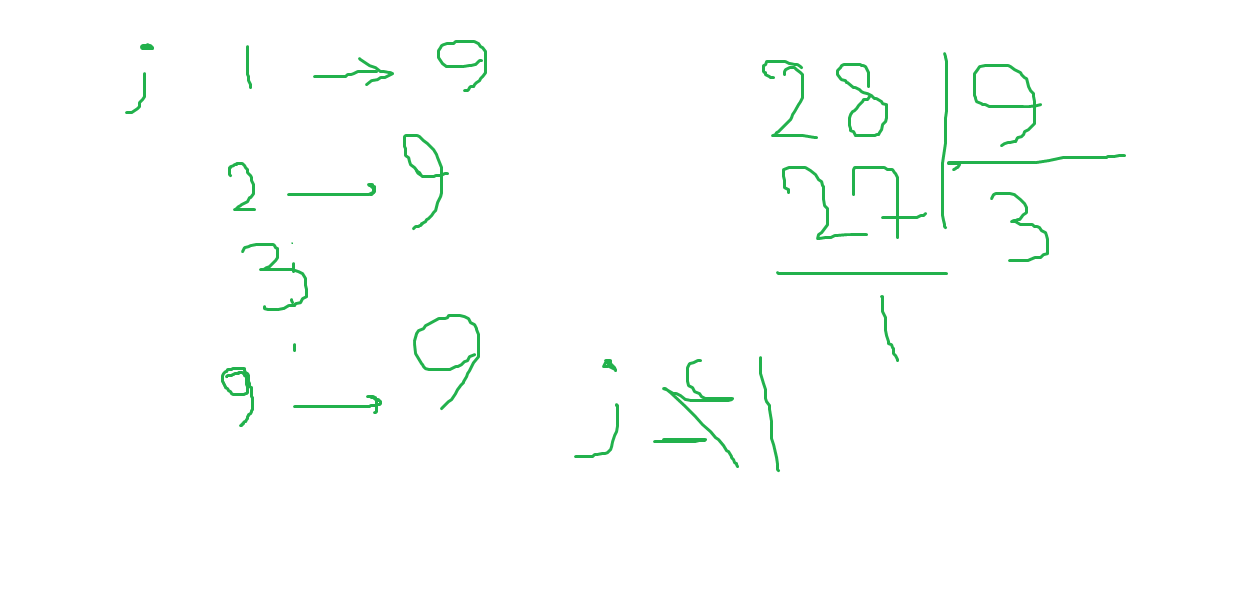 j 1 → 9
2 → 9
3
9 → 9
28 | 9
27 | 3
1
j
1